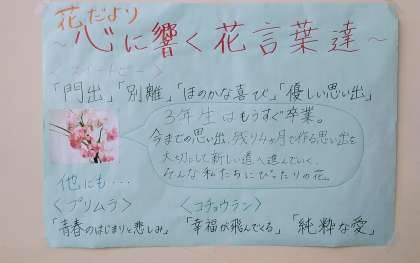 花だより
～心に響く花言葉達～
〈スイートピー〉
「門出」「別離」「ほのかな喜び」「優しい思い出」
3年生はもうすぐ卒業。
今までの思い出、残り4ヶ月で作る思い出を
大切にして新しい道へ進んでいく、
そんな私たちにぴったりの花。
他にも…
〈プリムラ〉 〈コチョウラン〉
「青春のはじまりと悲しみ」 「幸福が飛んでくる」 「純粋な愛」